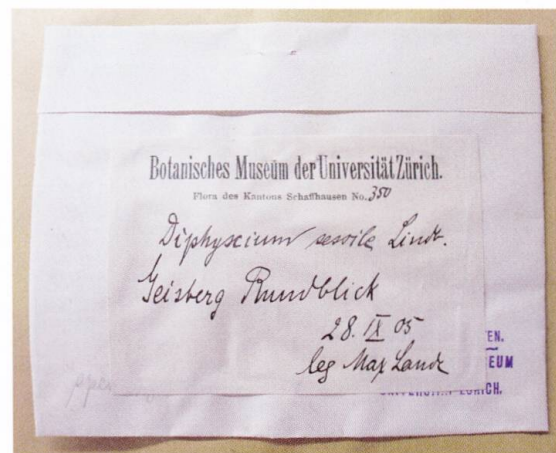 Botanisches Museum der Universität Zürich.
Flora des Kantons Schaffhausen No. 350
Diphyscium sessile Lindb.
Geisberg Rundblick
28. IX 05
leg Max Land
EN.
EUM
ZÜRICH.